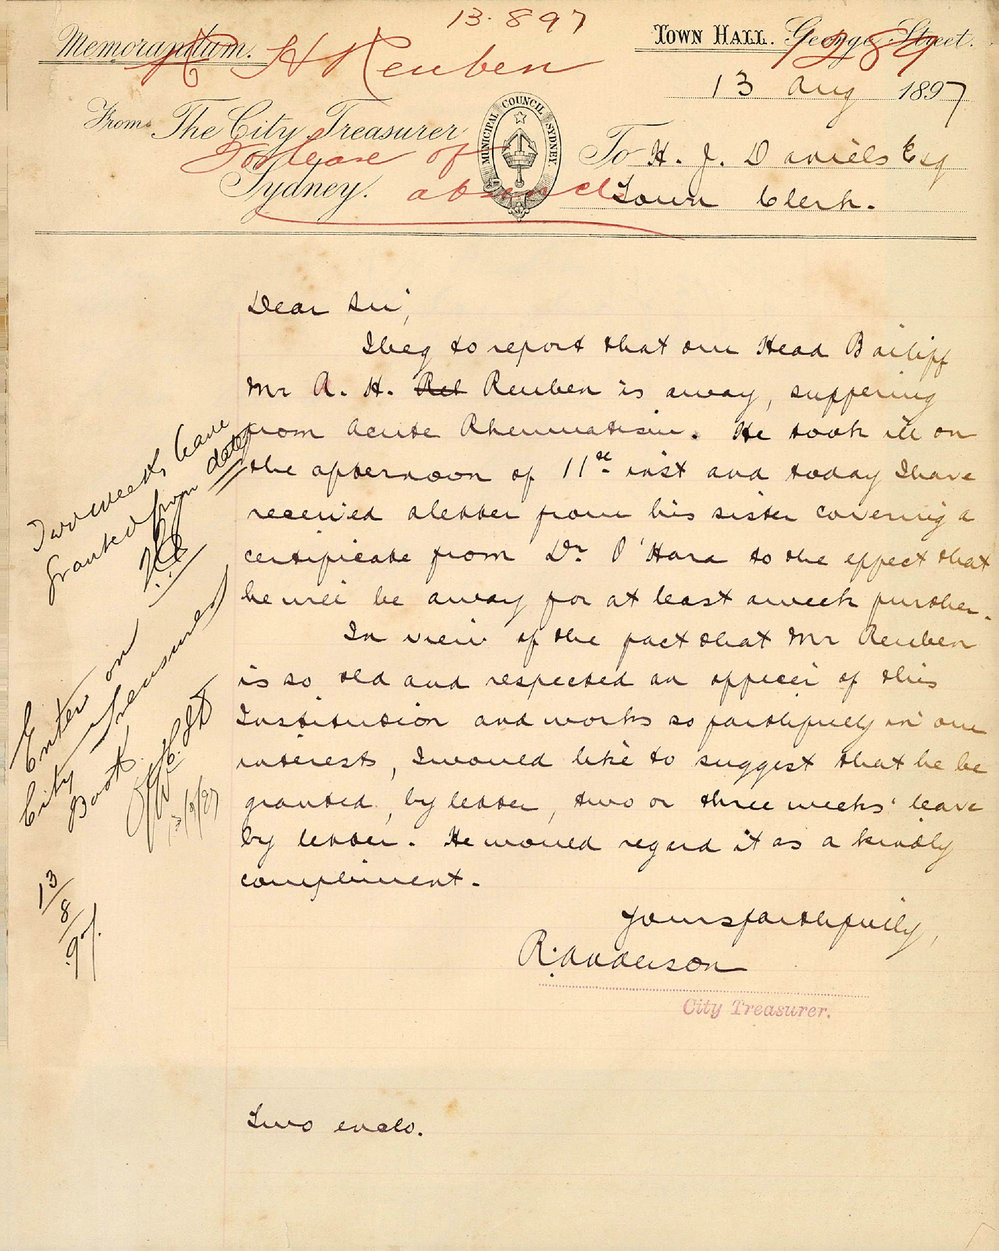 13.8.97
Memorandum.
A H Reuben
Town Hall. George Street.
13 Aug 1897
From The City Treasurer
Sydney.
For leave of
absence
MUNICIPAL COUNCIL SYDNEY
To H. J. Daniels Esq
Town Clerk.
Dear Sir,
I beg to report that our Head Bailiff
Mr A. H. Reuben is away, suffering
from Acute Rheumatism. He took ill on
the afternoon of 11th inst and today I have
received a letter from his sister covering a
certificate from Dr O'Hara to the effect that
he will be away for at least a week further.
In view of the fact that Mr Reuben
is so old and respected an officer of this
Institution and works so faithfully in our
interests, I would like to suggest that he be
granted, by letter, two or three weeks' leave
by letter. He would regard it as a kindly
compliment.
Yours faithfully,
R. Anderson
City Treasurer.
Two enclo.
Two weeks leave
granted from date
Enter on
City Treasurer's
13/8/97
13/8/97.